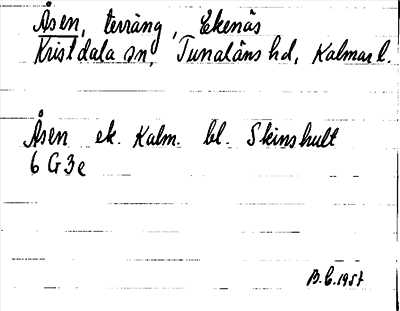 Åsen, terräng, Ekenäs
Kristdala sn, Tunaläns hd, Kalmar l.
Åsen ek. Kalm. bl. Skinshult
6 G 3 e
B.C. 1957